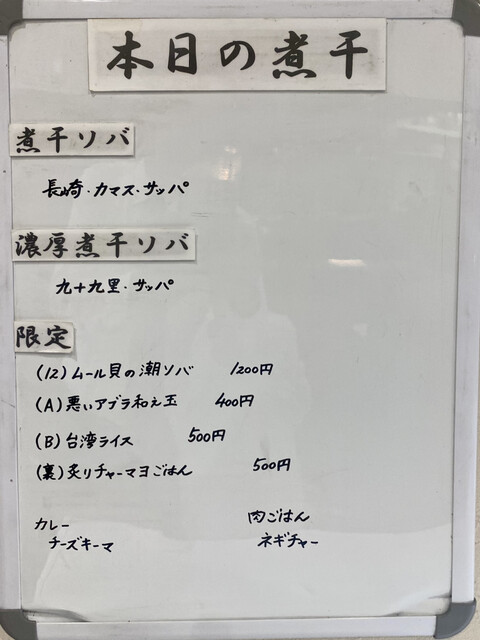 本日の煮干
煮干ソバ
長崎・カマス・サッパ
濃厚煮干ソバ
九十九里・サッパ
限定
(12)ムール貝の潮ソバ 1200円
(A)悪いアブラ和え玉 400円
(B)台湾ライス 500円
(裏)炙りチャーマヨごはん 500円
カレー 肉ごはん
チーズキーマ ネギチャー